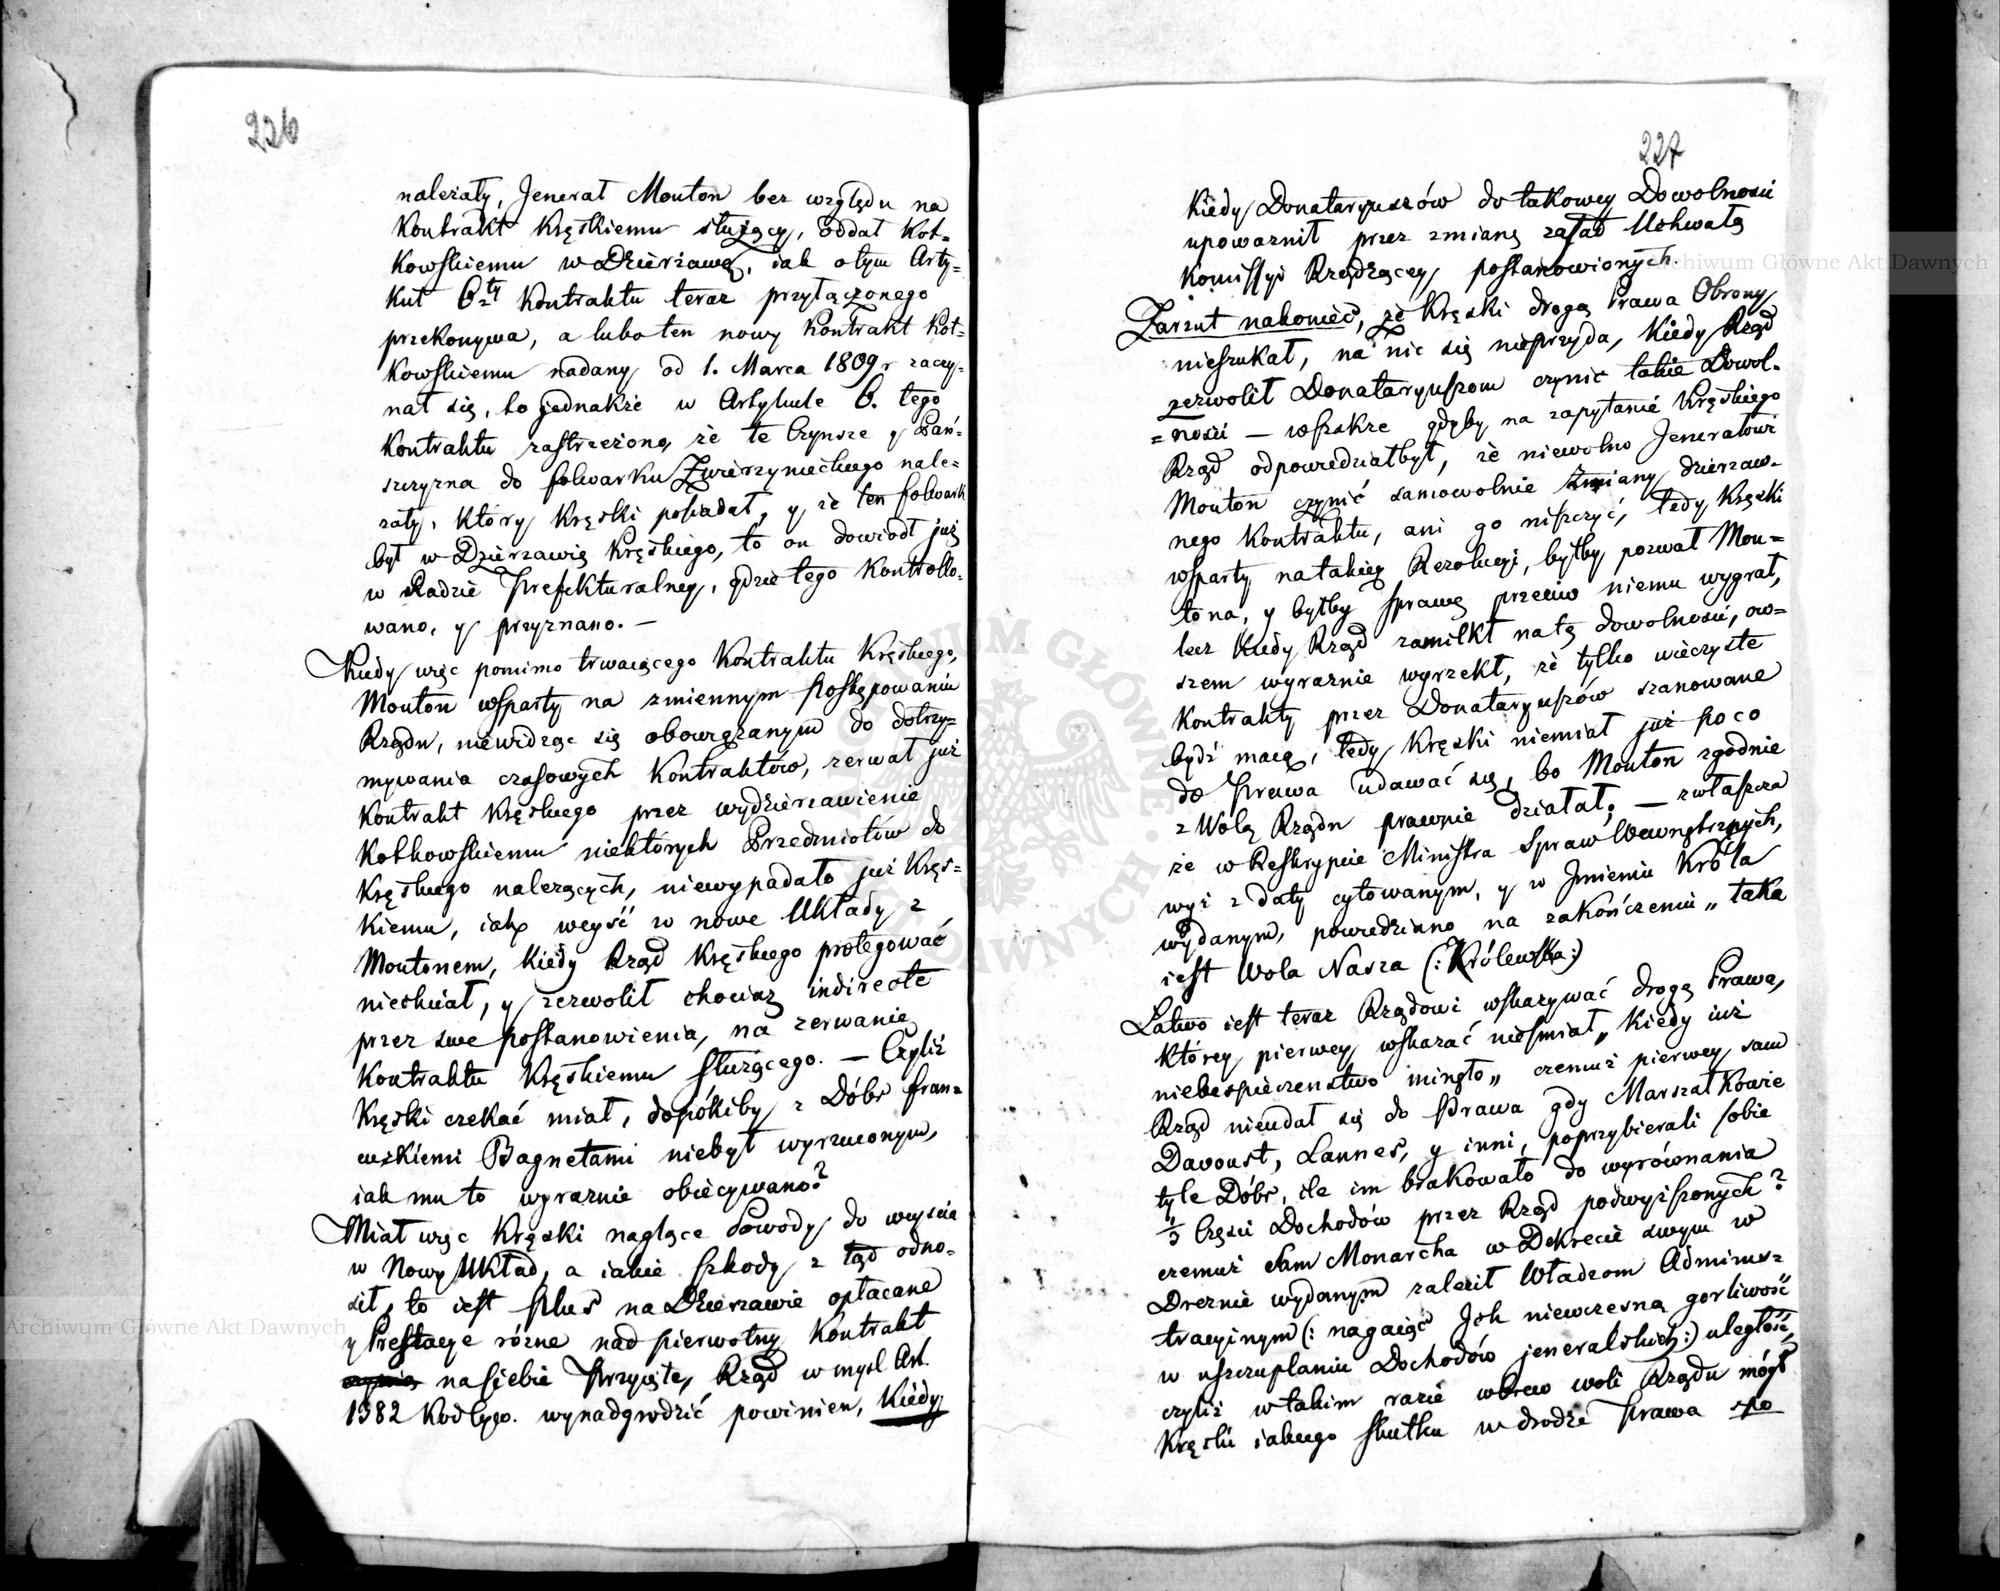 226
należały, Jenerał Mouton bez względu na
Kontrakt Kręskiemu służący, oddał Kot=
kowskiemu w Dzierżawę, iak otym Arty=
kuł 6ty Kontraktu teraz przyłączonego
przekonywa, a lubo ten nowy Kontrakt Kot=
kowskiemu nadany od 1. Marca 1809 r zaczy=
nał się, to jednakże w Artykule 6. tego
Kontraktu zastrzeżono, że te Czynsze y Pań=
szczyzna do folwarku Zwierzynieckiego nale=
żały, który Kręski posiadał, y że ten folwark
był w Dzierżawie Kręskiego, to on dowiodł już
w Radzie Prefekturalney, gdzie tego Kontrollo=
wano, y przyznano. —
Kiedy więc pomimo trwaiącego Kontraktu Kręskiego,
Mouton wsparty na zmiennym postępowaniu
Rządu, niewidząc się obowiązanym do dotrzy=
mywania czasowych Kontraktów, zerwał już
Kontrakt Kręskiego przez wydzierżawienie
Kotkowskiemu niektórych Przedmiotów do
Kręskiego należących, niewypadało już Kręs=
kiemu, iak weyść w nowe Układy z
Moutonem, Kiedy Rząd Kręskiego protegować
niechciał, y zezwolił chociaż indirecte
przez swe postanowienia, na zerwanie
Kontraktu Kręskiemu służącego. — Czyliż
Kręski czekać miał, dopókiby z Dóbr fran=
cuzkiemi Bagnetami niebył wyrzuconym,
iak mu to wyraźnie obiecywano?
Miał więc Kręski naglące Powody do weyścia
w Nowy Układ, a iakie szkody z tąd odno=
sił, to iest Plus na Dzierżawie opłacane
y Prestacye różne nad pierwotny Kontrakt
na siebie Przyięte, Rząd w myśl Art.
1382 Kodtygo. wynadgrodzić powinien, Kiedy
227
Kiedy Donataryuszów do takowey Dowolności
upoważnił przez zmianę zasad Uchwałą
Komissyi Rządzącey postanowionych
Zarzut nakoniec, że Kręski drogą Prawa Obrony
nieszukał, na nic się nieprzyda, Kiedy Rząd
zezwolił Donataryuszom czynić takie Dowol=
=ności — wszakże gdyby na zapytanie Kręskiego
Rząd odpowiedziałbył, że niewolno Jenerałowi
Mouton czynić samowolnie zmiany dzierżaw=
nego Kontraktu, ani go niszczyć, tedy Kręski
wsparty na takiey Rezolucyi, byłby pozwał Mou=
tona, y byłby Sprawę przeciw niemu wygrał,
lecz Kiedy Rząd zamilkł na tę dowolność, ow=
szem wyraźnie wyrzekł, że tylko wieczyste
Kontrakty przez Donataryuszów szanowane
bydź maią, tedy Kręski niemiał już poco
do Prawa udawać się, bo Mouton zgodnie
z Wolą Rządu prawnie działał; — zwłaszcza
że w Reskrypcie Ministra Spraw Wewnętrznych,
wyż z daty cytowanym, y w Jmieniu Króla
wydanym, powiedziano na zakończeniu „ taka
iest Wola Nasza (: Królewska :)
Łatwo iest teraz Rządowi wskazywać drogę Prawa,
Którey pierwey wskazać nieśmiał „ Kiedy iuż
niebespieczeństwo minęło „ czemuż pierwey sam
Rząd nieudał się do Prawa gdy Marszałkowie
Davoust, Lannes, y inni, poprzybierali sobie
tyle Dóbr, ile im brakowało do wyrównania
1/5 Części Dochodów przez Rząd podwyższonych?
czemuż Sam Monarcha w Dekrecie swym w
Dreznie wydanym zalecił Władzom Adminis=
tracyinym (: naganiąc Jch niewczesną gorliwość
w uszczuplaniu Dochodów jeneralskich :) uległość,
czyliż w takim razie wbrew woli Rządu mógł
Kręski iakiego skutku w drodze Prawa spo